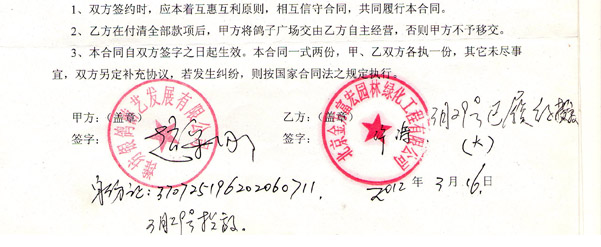 1、双方签约时，应本着互惠互利原则，相互信守合同，共同履行本合同。
2、乙方在付清全部款项后，甲方将鸽子广场交由乙方自主经营，否则甲方不予移交。
3、本合同自双方签字之日起生效。本合同一式两份，甲、乙双方各执一份，其它未尽事
宜，双方另定补充协议，若发生纠纷，则按国家合同法之规定执行。
甲方：（盖章）
签字：
艺发展有限公司
身份证：370725196202060711.
3月29号
乙方：（盖章）
签字：
北京金富宏园林绿化工程有限公司
3月29号已
（大）
2012年3月16日